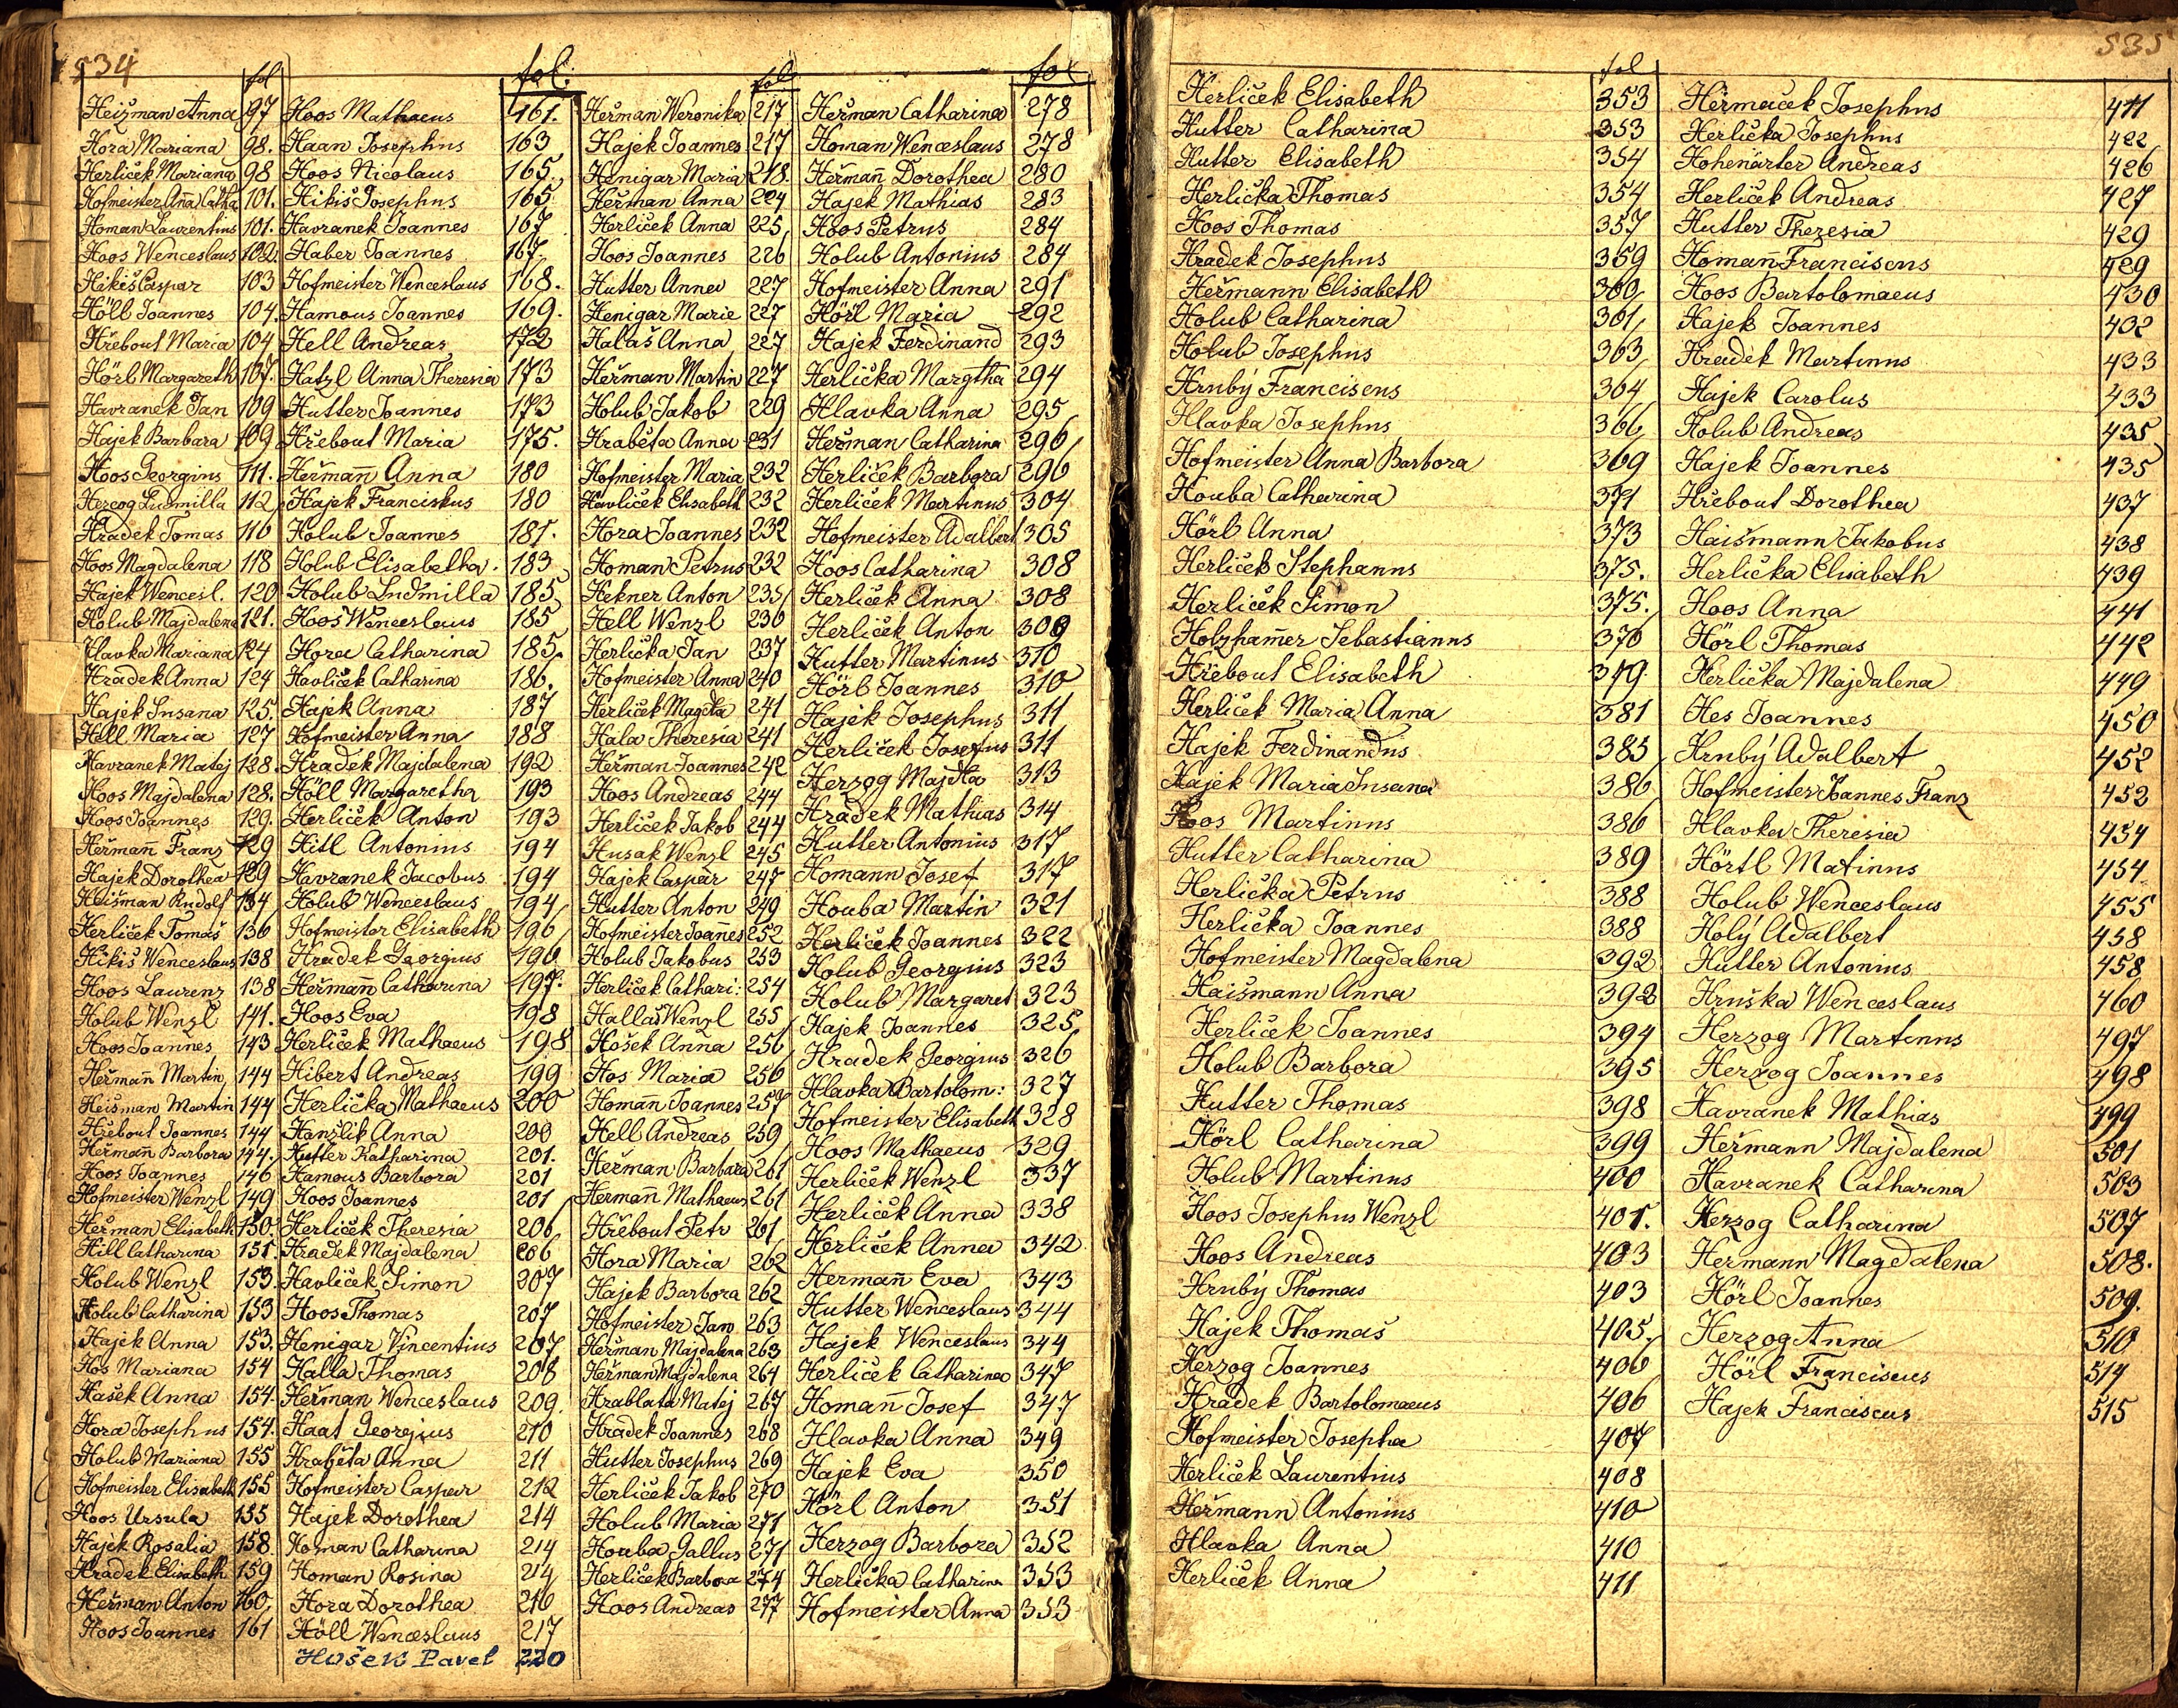 534
fol
Heižman Anna 97
Hora Mariana 98.
Herliček Mariana 98
Hofmeister Aña Catha 101.
Homan Laurentius 101.
Hoos Wenceslaus 102.
Hikiš Caspar 103
Höll Joannes 104.
Hřebout Maria 104
Hörl Margareth 107.
Havranek Jan 109
Hajek Barbara 109
Hoos Georgius 111.
Hercog Ludmilla 112
Hradek Tomas 116
Hoos Magdalena 118
Hajek Wencesl. 120
Holub Majdalena 121.
Hlavka Mariana 124
Hradek Anna 124
Hajek Susana 125.
Hell Maria 127
Havranek Matej 128.
Hoos Majdalena 128.
Hoos Joannes 129.
Heřmañ Franz 129
Hajek Dorothea 129
Heišman Rudolf 134
Herliček Tomaš 136
Hikiš Wenceslaus 138
Hoos Laurenz 138
Holub Wenzl 141.
Hoos Joannes 143
Heřmañ Martin 144
Heisman Martin 144
Hřebout Joannes 144
Heřmañ Barbora 144.
Hoos Joannes 146
Hofmeister Wenzl 149
Heřman Elisabeth 150.
Hill Catharina 151.
Holub Wenzl 153.
Holub Catharina 153
Hajek Anna 153.
Hos Mariana 154
Hašek Anna 154.
Hora Josephus 154.
Holub Mariana 155
Hofmeister Elisabeth 155
Hoos Ursula 155
Hajek Rosalia 158
Hradek Elisabeth 159
Heřman Anton 160,
Hoos Joannes 161
fol.
Hoos Mathaeus 161.
Haan Josephus 163
Hoos Nicolaus 165.
Hikiš Josephus 165
Havranek Joannes 167
Haber Joannes 167
Hofmeister Wenceslaus 168.
Hamous Joannes 169.
Hell Andreas 172
Hatzl Anna Theresia 173
Hutter Joannes 173
Hřebout Maria 175.
Heřmañ Anna 180
Hajek Franciskus 180
Holub Joannes 181.
Holub Elisabetha. 183
Holub Ludmilla 185
Hoos Wenceslaus 185
Hora Catharina 185
Havliček Catharina 186.
Hajek Anna 187
Hofmeister Anna 188
Hradek Majdalena 192
Höll Margaretha 193
Herliček Anton 193
Hitl Antonius 194
Havranek Jacobus 194
Holub Wenceslaus 194
Hofmeister Elisabeth 196
Hradek Georgius 196
Heřmañ Catharina 197.
Hoos Eva 198
Herliček Mathaeus 198
Hibert Andreas 199
Herlička Mathaeus 200
Hanzlik Anna 200
Hutter Katharina 201.
Hamous Barbora 201
Hoos Joannes 201
Herliček Theresia 206
Hradek Majdalena 206
Havliček Simon 207
Hoos Thomas 207
Henigar Vincentius 207
Halla Thomas 208
Heřman Wenceslaus 209.
Haat Georgius 210
Hraběta Anna 211
Hofmeister Caspar 212
Hajek Dorothea 214
Homan Catharina 214
Homan Rosina 214
Hora Dorothea 216
Höll Wenceslaus 217
Hošek Pavel 220
fol
Heřman Weronika 217
Hajek Joannes 217
Henigar Maria 218.
Heřman Anna 224
Herliček Anna 225
Hoos Joannes 226
Hutter Anna 227
Henigar Marie 227
Halaš Anna 227
Heřman Martin 227
Holub Jakob 229
Hraběta Anna 231
Hofmeister Maria 232
Havliček Elisabeth 232
Hora Joannes 232
Homan Petrus 232
Hekner Anton 235
Hell Wenzl 236
Herlička Jan 237
Hofmeister Anna 240
Herliček Magdta 241
Hala Theresia 241
Heřman Joannes 242
Hoos Andreas 244
Herliček Jakob 244
Husak Wenzl 245
Hajek Caspar 247
Hutter Anton 249
Hofmeister Joanes 252
Holub Jakobus 253
Herliček Cathari: 254
Hallaš Wenzl 255
Hošek Anna 256
Hos Maria 256
Homañ Joannes 257
Hell Andreas 259
Heřman Barbara 261
Hermañ Mathaeus 261
Hřebout Petr 261
Hora Maria 262
Hajek Barbora 262
Hofmeister Jan 263
Heřman Majdalena 263
Heřman Majdalena 264
Hrablata Matej 267
Hradek Joannes 268
Hutter Josephus 269
Herliček Jakob 270
Holub Maria 271
Houba Gallus 271
Herliček Barbora 274
Hoos Andreas 277
fol
Heřman Catharina 278
Homan Wenceslaus 278
Heřmañ Dorothea 280
Hajek Mathias 283
Hoos Petrus 284
Holub Antonius 284
Hofmeister Anna 291
Hörl Maria 292
Hajek Ferdinand 293
Herlička Margtha 294
Hlavka Anna 295
Heřman Catharina 296
Herliček Barbora 296
Herliček Martinus 304
Hofmeister Adalbert 305
Hoos Catharina 308
Herliček Anna 308
Herliček Anton 309
Hutter Martinus 310
Hörl Joannes 310
Hajek Josephus 311
Herliček Josefus 311
Herzog Majdta 313
Hradek Mathias 314
Hutter Antonius 317
Homann Josef 317
Houba Martin 321
Herliček Joannes 322
Holub Georgius 323
Holub Margaret 323
Hajek Joannes 325
Hradek Georgius 326
Hlavka Bartolom: 327
Hofmeister Elisabeth 328
Hoos Mathaeus 329
Herliček Wenzl 337
Herliček Anna 338
Herliček Anna 342
Hermañ Eva 343
Hutter Wenceslaus 344
Hajek Wenceslaus 344
Herliček Catharina 347
Homañ Josef 347
Hlavka Anna 349
Hajek Eva 350
Hörl Anton 351
Herzog Barbora 352
Herlička Catharina 353
Hofmeister Anna 353
535
fol
Herliček Elisabeth 353
Hutter Catharina 353
Hutter Elisabeth 354
Herlička Thomas 354
Hoos Thomas 357
Hradek Josephus 359
Heřmann Elisabeth 360
Holub Catharina 361
Holub Josephus 363
Hrubý Franciscus 364
Hlavka Josephus 366
Hofmeister Anna Barbora 369
Houba Catharina 371
Hörl Anna 373
Herliček Stephanus 375.
Herliček Simon 375.
Holzham̃er Sebastianus 376
Hřebout Elisabeth 379.
Herliček Maria Anna 381
Hajek Ferdinandus 385
Hajek Maria Susana 386
Hoos Martinus 386
Hutter Catharina 389
Herlička Petrus 388
Herlička Joannes 388
Hofmeister Magdalena 392
Haišmann Anna 392
Herliček Joannes 394
Holub Barbora 395
Hutter Thomas 398
Hörl Catharina 399
Holub Martinus 400
Hoos Josephus Wenzl 401.
Hoos Andreas 403
Hrubý Thomas 403
Hajek Thomas 405
Herzog Joannes 406
Hradek Bartolomaeus 406
Hofmeister Josepha 407
Herliček Laurentius 408
Heřmann Antonius 410
Hlavka Anna 410
Herliček Anna 411
Heřmaček Josephus 411
Herlička Josephus 422
Hohenärter Andreas 426
Herliček Andreas 427
Hutter Theresia 429
Homañ Franciscus 429
Hoos Bartolomaeus 430
Hajek Joannes 432
Hradek Martinus 433
Hajek Carolus 433
Holub Andreas 435
Hajek Joannes 435
Hřebout Dorothea 437
Haišmann Jakobus 438
Herlička Elisabeth 439
Hoos Anna 441
Hörl Thomas 442
Herlička Majdalena 449
Hes Joannes 450
Hrubý Adalbert 452
Hofmeister Joannes Franz 452
Hlavka Theresia 454
Hörtl Matinus 454
Holub Wenceslaus 455
Holý Adalbert 458
Hutter Antonius 458
Hruška Wenceslaus 460
Herzog Martinus 497
Herzog Joannes 498
Havranek Mathias 499
Heřmann Majdalena 501
Havranek Catharina 503
Herzog Catharina 507
Hermann Magdalena 508.
Hörl Joannes 509.
Herzog Anna 510
Hörl Franciscus 514
Hajek Franciscus 515